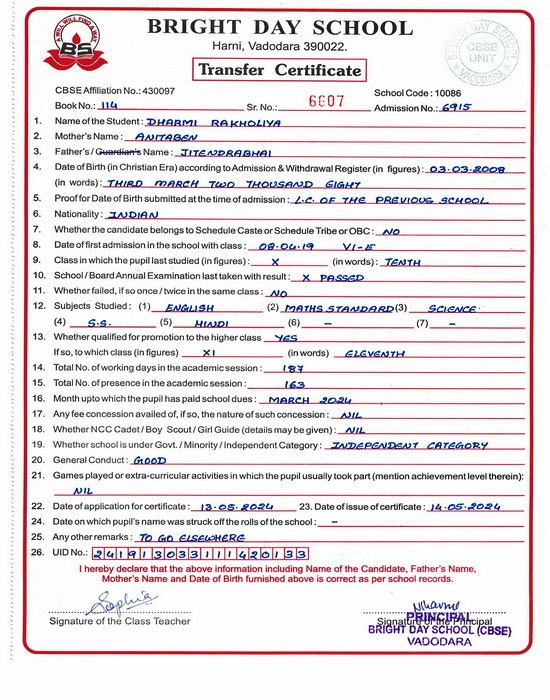 A WILL WILL FIND A WAY
BS
BRIGHT DAY SCHOOL
Harni, Vadodara 390022.
Transfer Certificate
BRIGHT DAY SCHOOL
CBSE
UNIT
VADODARA
CBSE Affiliation No.: 430097 School Code : 10086
Book No.: 114 Sr. No.: 6607 Admission No.: 6915
1. Name of the Student : DHARMI RAKHOLIYA
2. Mother's Name : ANITABEN
3. Father's / Guardian's Name : JITENDRABHAI
4. Date of Birth (in Christian Era) according to Admission & Withdrawal Register (in figures) : 03.03.2008
(in words) : THIRD MARCH TWO THOUSAND EIGHT
5. Proof for Date of Birth submitted at the time of admission : L.C. OF THE PREVIOUS SCHOOL
6. Nationality : INDIAN
7. Whether the candidate belongs to Schedule Caste or Schedule Tribe or OBC : NO
8. Date of first admission in the school with class : 08.04.19 VI-E
9. Class in which the pupil last studied (in figures) : X (in words) : TENTH
10. School / Board Annual Examination last taken with result : X PASSED
11. Whether failed, if so once / twice in the same class : NO
12. Subjects Studied : (1) ENGLISH (2) MATHS STANDARD (3) SCIENCE
(4) S.S. (5) HINDI (6) – (7) –
13. Whether qualified for promotion to the higher class YES
If so, to which class (in figures) XI (in words) ELEVENTH
14. Total No. of working days in the academic session : 187
15. Total No. of presence in the academic session : 163
16. Month upto which the pupil has paid school dues : MARCH 2024
17. Any fee concession availed of, if so, the nature of such concession : NIL
18. Whether NCC Cadet / Boy Scout / Girl Guide (details may be given) : NIL
19. Whether school is under Govt. / Minority / Independent Category : INDEPENDENT CATEGORY
20. General Conduct : GOOD
21. Games played or extra-curricular activities in which the pupil usually took part (mention achievement level therein):
NIL
22. Date of application for certificate : 13.05.2024 23. Date of issue of certificate : 14.05.2024
24. Date on which pupil's name was struck off the rolls of the school : –
25. Any other remarks : TO GO ELSEWHERE
26. UID No.: 241913033111420133
I hereby declare that the above information including Name of the Candidate, Father's Name,
Mother's Name and Date of Birth furnished above is correct as per school records.
Sophia
Signature of the Class Teacher Signature of the Principal
PRINCIPAL
BRIGHT DAY SCHOOL (CBSE)
VADODARA